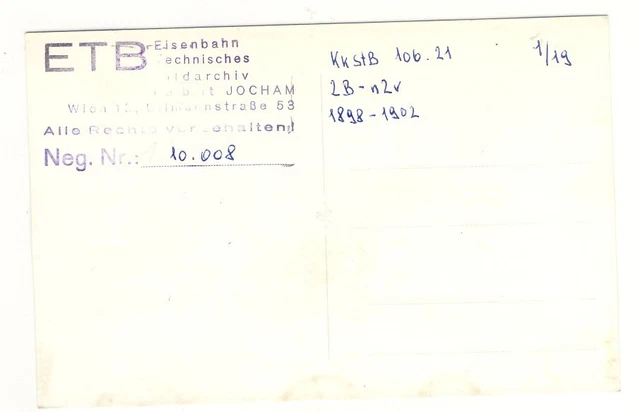 ETB Eisenbahn
technisches
ildarchiv
JOCHAM
Wien straße 53
Alle Rechte vorbehalten!
Neg. Nr.: 10.008
KkStB 106.21
2B-n2v
1898-1902
1/19